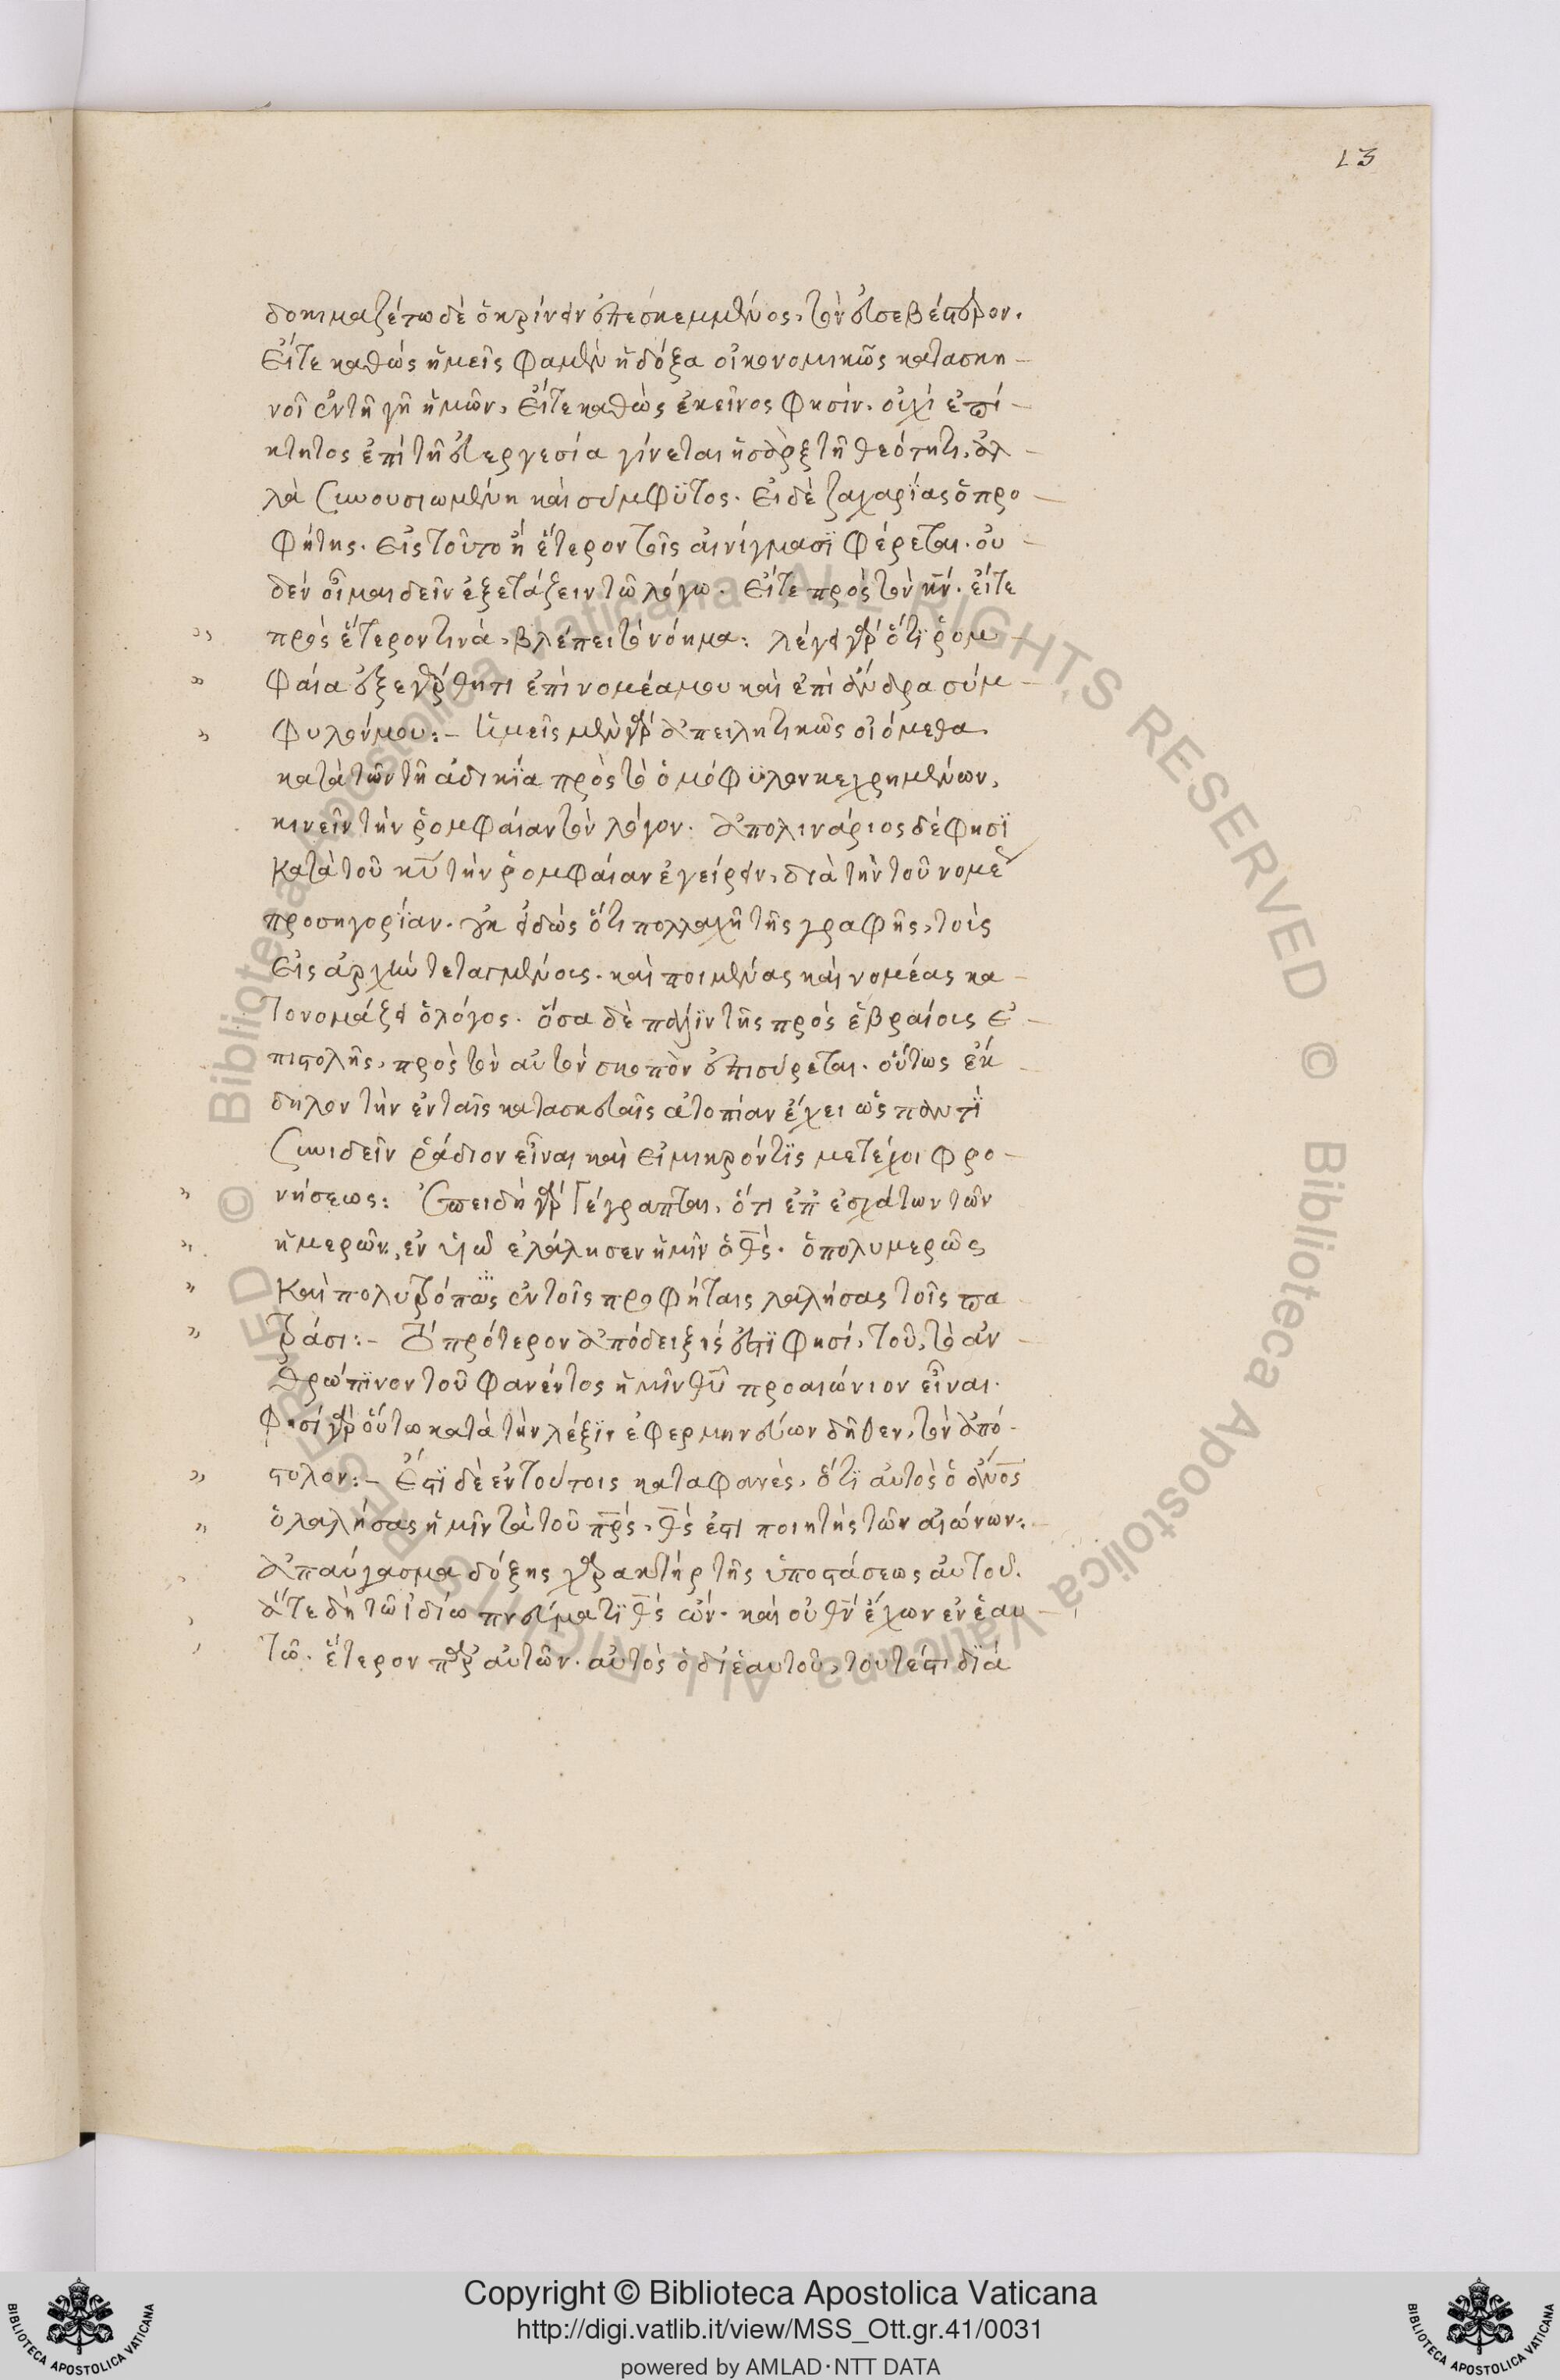 13
δοκιμαζέτω δὲ ὁ κρίνειν ἐπεσκεμμένος, τὸν εὐσεβέστερον.
Εἴτε καθώς ἡμεῖς φαμὲν ἡ δόξα οἰκονομικῶς κατασκη-
νοῖ ἐν τῆ γῆ ἡμῶν, εἴτε καθὼς ἐκεῖνος φησίν. οὐχί ἐπί-
κτητος ἐπί τῆ εὐεργεσία γίνεται ἡ σὰρξ τῆ θεότητι, ἀλ-
λὰ συνουσιωμένη καὶ σύμφϋτος. Εἰ δὲ ζαχαρΐας ὁ προ-
φήτης. εἰς τοῦτο ἢ ἕτερον τοῖς αἰνίγμασϊ φέρεται. οὐ-
δέν οἶμαι δεῖν ἐξετάζειν τῶ λόγω. Εἴτε πρὸς τὸν κ̅ν̅. εἴτε
πρὸς ἕτερον τινὰ, βλέπει τὸ νόημα: λέγει γὰρ ὅτϊ ῥομ-
φαία ἐξεγέρθητι ἐπὶ νομέα μου καὶ ἐπὶ ἄνδρα σύμ-
φυλόν μου:- Ἡμεῖς μὲν γὰρ ἀπειλητικῶς οἰόμεθα.
κατὰ τῶν τῆ ἀδικΐα πρὸς τὸ ὁμόφϋλον κεχρημένων,
κινεῖν τὴν ῥομφαίαν τὸν λόγον. ἀπολινάριος δέ φησϊ
Κατὰ τοῦ κ̅υ̅ τὴν ῥομφαίαν ἐγείρειν, διὰ τὴν τοῦ νομέ
προσηγορΐαν. οὐκ εἰδὼς ὅτι πολλαχῆ τῆς γραφῆς, τοὶς
εἰς ἀρχὴν τεταγμένοις. καὶ ποιμένας καὶ νομέας κα-
τονομάζει ὁ λόγος. ὅσα δὲ πάλϊν τῆς πρὸς ἑβραίους ἐ-
πιστολῆς, πρὸς τὸν αὐτὸν σκοπὸν ἐπισύρεται. οὕτως ἔκ-
δηλον τὴν ἐν ταῖς κατασκευαῖς ἀτοπίαν ἔχει ὡς παντὶ
συνιδεῖν ῥάδιον εἶναι καὶ εἰ μικρόν τϊς μετέχοι φρο-
νήσεως: Ἐπειδὴ γὰρ Γέγραπται, ὅτι ἐπ' ἐσχάτων τῶν
ἡμερῶν, ἐν υἱῶ ἐλάλησεν ἡμῖν ὁ θ̅ς̅. ὁ πολυμερῶς
Καὶ πολυτρόπως ἐν τοῖς προφήταις λαλήσας τοῖς πα-
τράσι:- Ὁ πρότερον ἀπόδειξίς ἐστϊ φησί, τοῦ, τὸ ἀν-
θρώπϊνον τοῦ φανέντος ἡμῖν θ̅υ̅ προαιώνιον εἶναι.
φησί γὰρ οὕτω κατὰ τὴν λέξϊν ἐφερμηνεύων δῆθεν, τὸν ἀπό-
στολον:- Ἔστϊ δὲ ἐν τούτοις καταφανὲς, ὅτϊ αὐτὸς ὁ ἄν̅ο̅ς̅
ὁ λαλήσας ἡμῖν τὰ τοῦ π̅ρ̅ς̅, θ̅ς̅ ἐστι ποιητὴς τῶν αἰώνων:
ἀπαύγασμα δόξης χαρακτὴρ τῆς ὑποστάσεως αὐτοῦ.
ἅτε δὴ τῶ ἰδίω πνεύματϊ θ̅ς̅ ὤν. καὶ οὐ θ̅ν̅ ἔχων ἐν ἑαυ-
τῶ. ἕτερον παρ' αὐτῶν. αὐτὸς ὁ δι' ἑαυτοῦ, τουτέστι διὰ
Copyright © Biblioteca Apostolica Vaticana
http://digi.vatlib.it/view/MSS_Ott.gr.41/0031
powered by AMLAD·NTT DATA